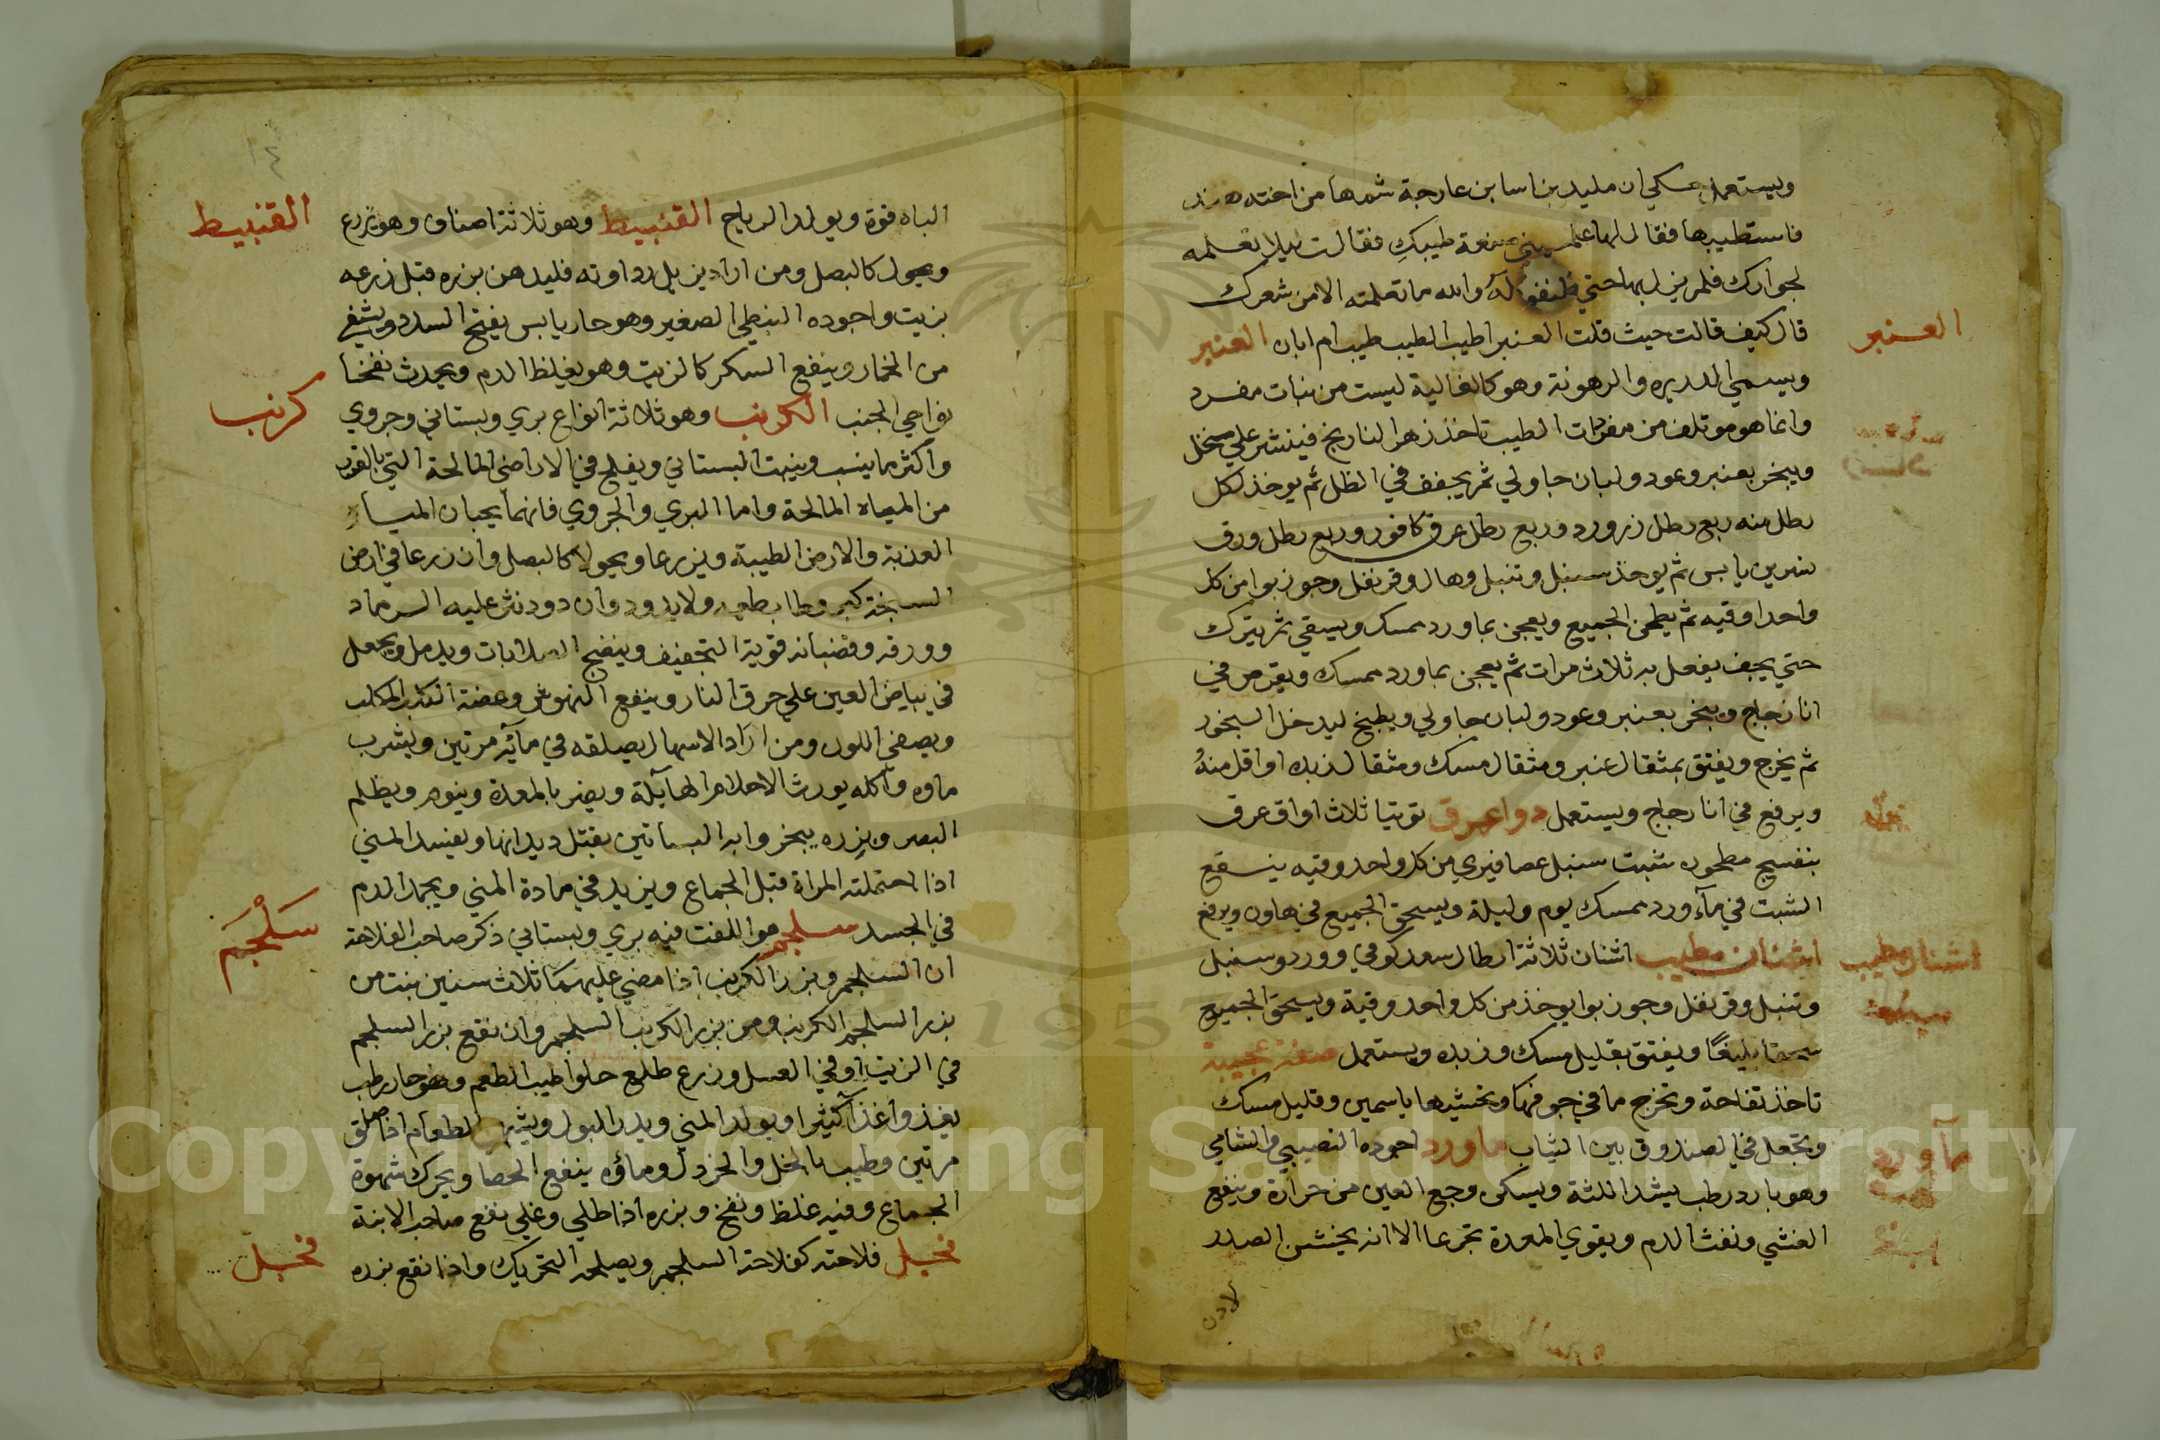 ويستعمل حكي ان مليد بن اسا بن عارجة شمها من اخته هند
فاستطيبها فقال لها علميني صنعة طيبك فقالت ليلا تعلمه
لجوارك فلم يزل بها حتي والله ما تعلمته الا من شعرك
قال كيف قالت حيث قلت العنبر اطيب الطيب طيب ام ابان العنبر
العنبر
ويسمي الدريره والرهونة وهو كالغالية ليست من نبات مفرد
وانما هو موتلف من مفردات الطيب تاخذ زهر النارنج فينشر علي منخل
ويبخر بعنبر وعود ولبان جاولي ثم يجفف في الظل ثم يوخذ لكل
رطل منه ربع رطل زر ورد وربع رطل عرق كافور وربع رطل ورق
نسرين يابس ثم يوخذ سنبل وتنبل وهال وقرنفل وجوز بوا من كل
واحد اوقيه ثم يطحن الجميع ويعجن بماورد ممسك ويسقي ثم يترك
حتي يجف يفعل به ثلاث مرات ثم يعجن بماورد ممسك ويقرص في
انا زجاج ويبخر بعنبر وعود ولبان جاولي ويطبخ ليدخل البخور
ثم يخرج ويفتق بمثقال عنبر ومثقال مسك ومثقال زبده او اقل منه
ويرفع في انا زجاج ويستعمل دوا عرق توتيا ثلاث اواق عرق
بنفسج مطحون شبت سنبل عصافيري من كل واحد وقيه ينقع
الشبت في مآء ورد ممسك يوم وليلة ويسحق الجميع في هاون ويرفع
اشنان مطيب اشنان ثلاثة ارطال سعد كوفي وورد وسنبل
اشنان مطيب
وتنبل وقرنفل وجوز بوا يوخذ من كل واحد وقية ويسحق الجميع
سحقا بليغا ويفتق بقليل مسك وزبده ويستعمل صفة عجيبة
تاخذ تفاحة وتخرج ما في جوفها وتحشيها ياسمين وقليل مسك
وتجعل في الصندوق بين الثياب ماورد اجوده النصيبي والشامي
مآورد
وهو بارد رطب يشد اللثة ويسكن وجع العين من حرارة وينفع
الغشي ونفث الدم ويقوي المعدة تجرعا الا انه يخشن الصدر
لادن
١٤
الباه قوة ويولد الرياح القنبيط وهو ثلاثة اصناف وهو يزرع
القنبيط
ويحول كالبصل ومن اراد يزيل رداوته فليدهن بزره قبل زرعه
بزيت واجوده النبطي الصغير وهو حار يابس يفتح السدد ويشفي
من الخمار وينفع السكر كالزيت وهو يغلظ الدم ويحدث نفخا
نواحي الجنب الكرنب وهو ثلاثة انواع بري وبستاني وجروي
كرنب
واكثر ما ينسب وينبت البستاني ويفلح في الاراضي المالحة التي بالقرب
من المياه المالحة واما البري والجروي فانهما يحبان المياه
العذبة والارض الطيبة ويزرعا ويحولا كالبصل وان زرعا في ارض
السبخة كبر وطاب طعمه ولا يدود وان دود نثر عليه الرماد
وورقه وقضبانه قوية التجفيف وينضج الصلابات ويدمل ويجعل
في بياض العين علي حرق النار وينفع النهوش وعضة الكلب المكلب
ويصفي اللون ومن اراد الاسهال يصلقه في مآئه مرتين ويشرب
ماوه واكله يورث الاحلام الهآيلة ويضر بالمعدة وينوم ويظلم
البصر وبزره يبخر وا به البساتين يقتل ديدانها ويفسد المني
اذا احتملته المراة قبل الجماع ويزيد في مادة المني ويجمد الدم
في الجسد سلجم هو اللفت فيه بري وبستاني ذكر صاحب الفلاحة
سَلْجَم
ان السلجم وبزر الكرنب اذا مضي عليهما ثلاث سنين ينبت من
بزر السلجم الكرنب ومن بزر الكرنب السلجم وان نقع بزر السلجم
في الزيت او في العسل وزرع طلع حلوا طيب الطعم وهو حار رطب
يغذو اغذآ كثيرا ويولد المني ويدر البول ويشهي الطعام اذا صلق
مرتين وطيب بالخل والخردل وماؤه ينفع الحصا ويحرك شهوة
الجماع وفيه غلظ ونفخ وبزره اذا طلي وغلي ينفع صاحب الابنة
فجل فلاحته كفلاحة السلجم ويصلحه التحريك واذا نقع بزره
فجل